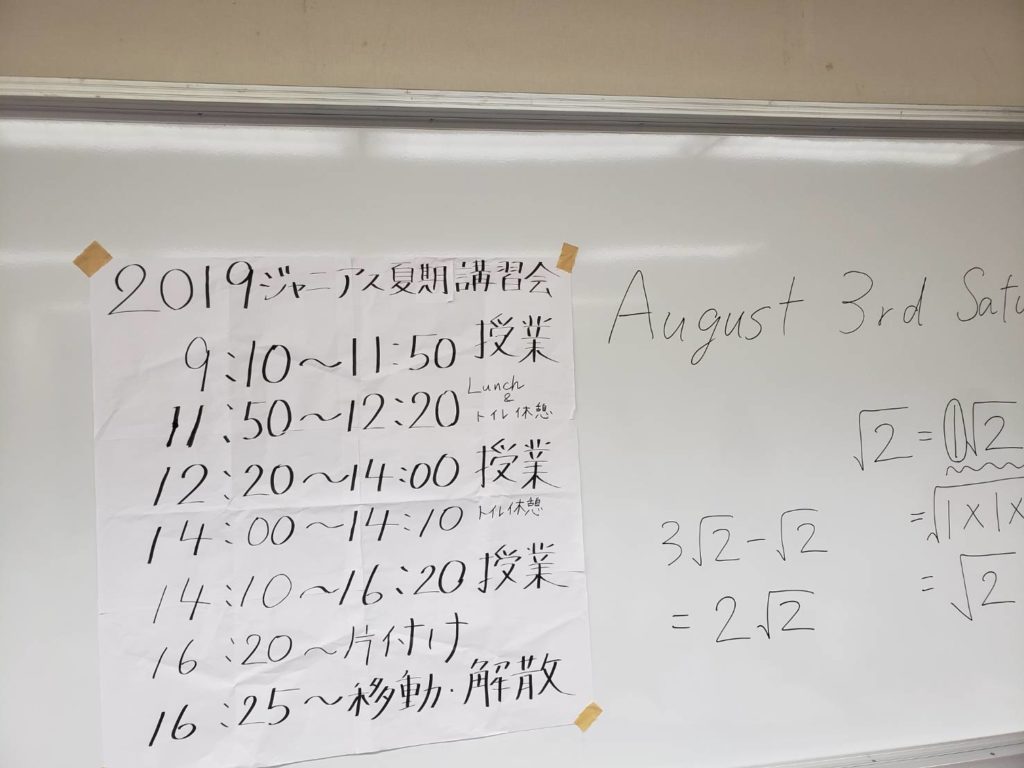 2019ジャニアス夏期講習会
9:10〜11:50 授業
11:50〜12:20 Lunch & トイレ休憩
12:20〜14:00 授業
14:00〜14:10 トイレ休憩
14:10〜16:20 授業
16:20〜片付け
16:25〜移動・解散
August 3rd Satu
√2 = 1√2
= √1×1×
= √2
3√2 − √2
= 2√2